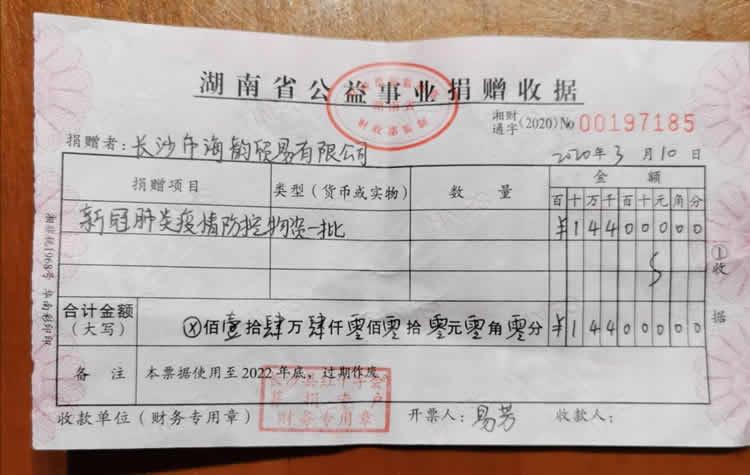 湖南省公益事业捐赠收据
湘财通字(2020) No 00197185
捐赠者: 长沙市海韵贸易有限公司
2020年3月10日
捐赠项目 类型(货币或实物) 数量 金额
百十万千百十元角分
新冠肺炎疫情防控物资一批 ¥14400000
合计金额(大写) ⓧ佰壹拾肆万肆仟零佰零拾零元零角零分 ¥14400000
备注 本票据使用至2022年底,过期作废
长沙县红十字会
财务专用章
收款单位(财务专用章) 开票人: 易芳 收款人:
①收据